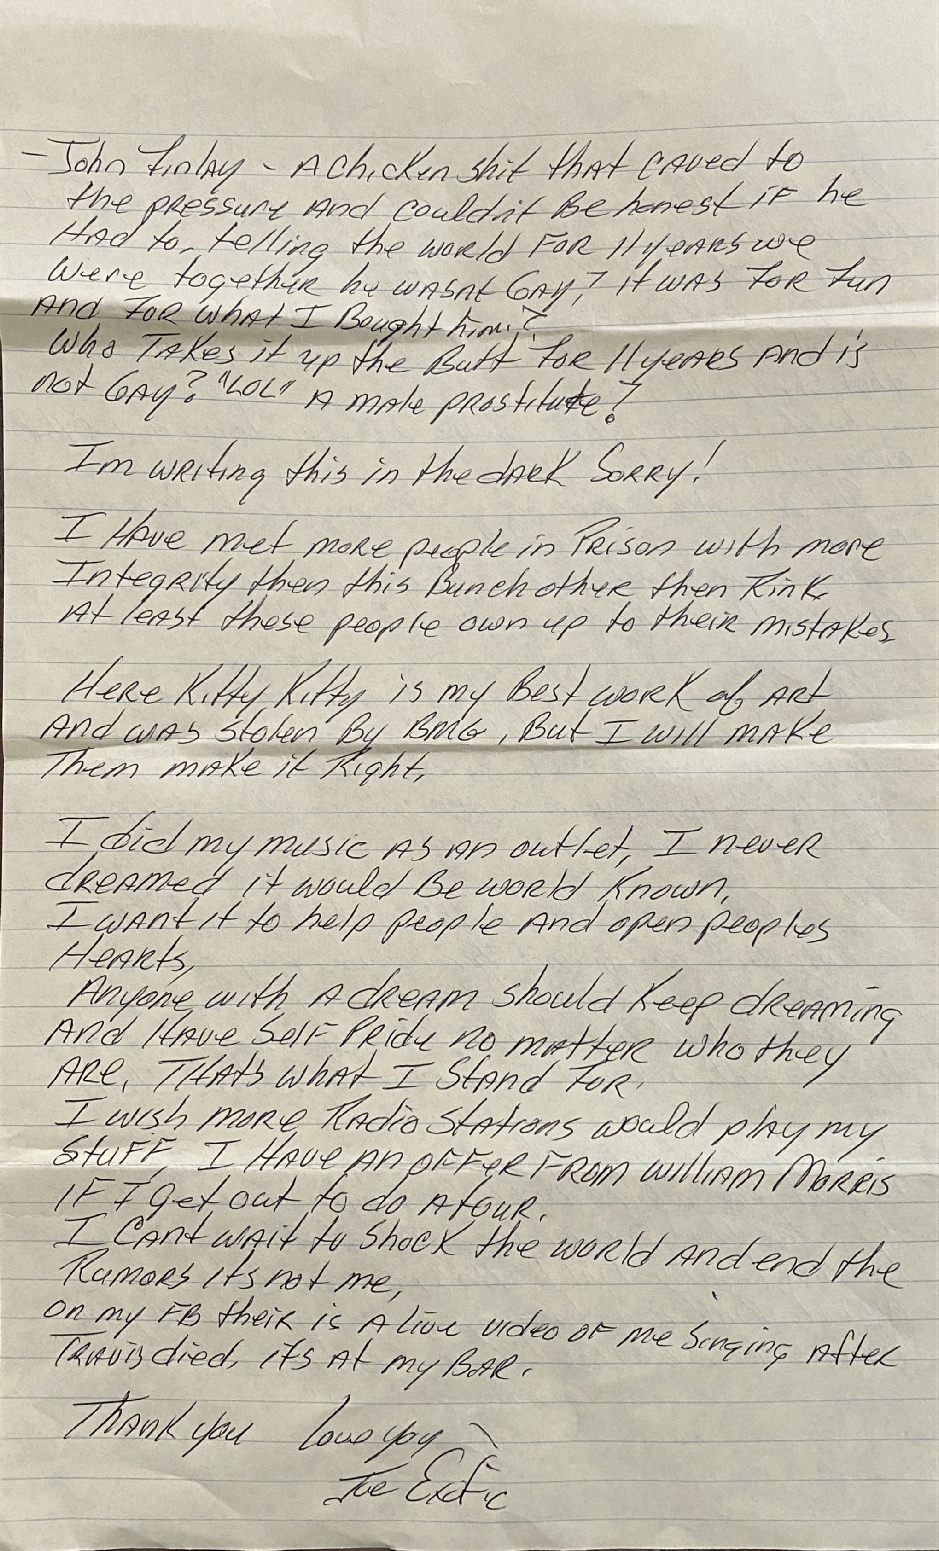 - John Finlay - A chicken shit that caved to
the pressure and couldnt Be honest if he
Had to, telling the world For 11 years we
Were together he wasnt Gay, it was for fun
And For what I Bought him?
Who Takes it up the Butt for 11 years and is
not Gay? "LOL" A male prostitute?
Im writing this in the dark Sorry!
I Have met more people in Prison with more
Integrity then this Bunch other then Rink.
At least these people own up to their mistakes
Here Kitty Kitty is my Best work of art
And was stolen By BMG, But I will make
Them make it Right,
I did my music as an outlet, I never
dreamed it would Be world known,
I want it to help people And open peoples
Hearts,
Anyone with A dream should Keep dreaming
And Have Self Pride no matter who they
Are, THAts what I Stand For.
I wish more Radio Stations would play my
Stuff, I Have an offer From William Morris
IF I get out to do a tour.
I Cant wait to Shock the world And end the
Rumors its not me,
on my FB their is A live video of me Singing After
Travis died, its At my BAR.
Thank you Love you
Joe Exotic